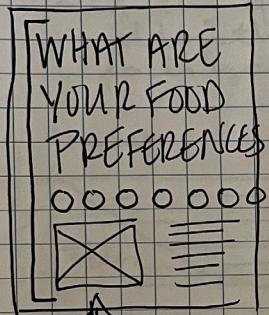 WHAT ARE
YOUR FOOD
PREFERENCES